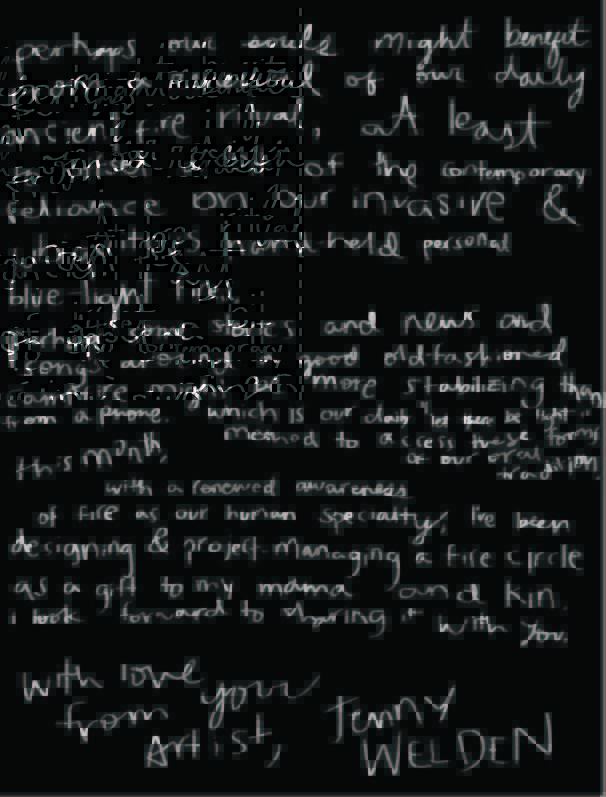 perhaps our souls might benefit
from a renewal of our daily
ancient fire ritual, at least
to offset a bit of the contemporary
reliance on our invasive &
hand held personal
blue light fires
perhaps some stories and news and
songs around in good old fashioned
campfire might be more stabilizing than
from a phone. which is our daily "let there be light"
method to access these forms
of our oral
tradition
this month,
with a renewed awareness
of fire as our human specialty, I've been
designing & project managing a fire circle
as a gift to my mama and kin.
i look forward to sharing it with you.
with love your
from
Artist, Jenny
WELDEN